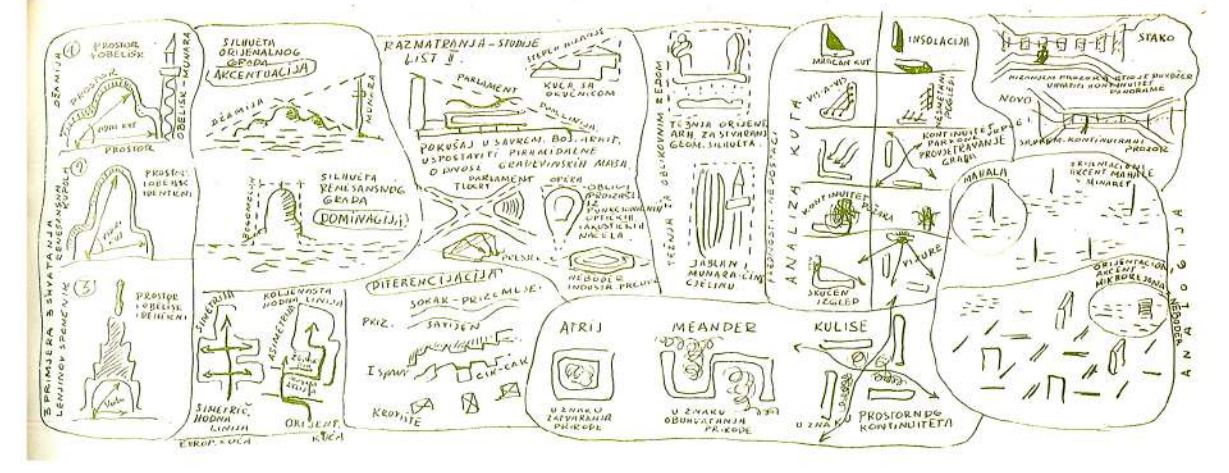 3 PRIMJERA SHVATANJA
DŽAMIJA
RENESANSNA
KUPOLA
LENJINOV SPOMENIK
1
PROSTOR
I OBELISK
PROSTOR
VIDNI KUT
PROSTOR
OBELISK-MUNARA
2
PROSTOR
I OBELISK
IDENTIČNI
VIDNI
KUT
3
PROSTOR
I OBELISK
IDENTIČNI
SILHUETA
ORIJENALNOG
GRADA
AKCENTUACIJA
DŽAMIJA
MUNARA
SILHUETA
RENESANSNOG
GRADA
DOMINACIJA
SIMETRIJA
KOLJENASTA
HODNA LINIJA
ASIMETRIJA
SIMETRIČ.
HODNA
LINIJA
EVROP. KUĆA
ORIJENT.
KUĆA
RAZMATRANJA-STUDIJE
LIST II
STEPEN NIZANJE
KUĆA SA
OKUĆNICOM
PARLAMENT
DOMLINIJA
POKUŠAJ U SAVREM. BOS. ARHIT.
USPOSTAVITI PIRAMIDALNE
ODNOSE GRAĐEVINSKIH MASA
PARLAMENT
TLOCRT
OPERA
OBLICI
PROIZAŠLI
IZ
FUNKCIONALNIH
OPTIČKIH
I AKUSTIČKIH
NAČELA
NEBODER
DIFERENCIJACIJA
SOKAK-PRIZEMLJE
PRIZ.
SAVIJEN
I sprat
CIK-CAK
KROVIŠTE
TEŽNJA ZA OBLIKOVNIM REDOM
TEŽNJA ORIJENT.
ARH. ZA STVARANJ.
GEOM. SILHUETA.
JABLAN I
MUNARA-ČINE
CJELINU
ANALIZA KUTA
MRAČAN KUT
INSOLACIJA
VIS-A-VIS
POGLEDI
KONTINUITET
PARKOVA
PROVJETRAVANJE
GRADA
KONTINUITET
POŽARA
SKUČEN
IZGLED
VIZURE
STAKO
NIZANJEM PROZORA
KONTINUITET
PANORAME
NOVO
SAVREM. KONTINUIRANI
PROZOR
MAHALA
ORIJENTACIONI
AKCENT MAHALE
MINARET
ORIJENTACION
AKCENT
MIKROREJONA
NEBODER
ATRIJ
U ZNAKU
ZATVARANJA
PRIRODE
MEANDER
U ZNAKU
OBUHVATANJA
PRIRODE
KULISE
U ZNAKU
PROSTORNOG
KONTINUITETA